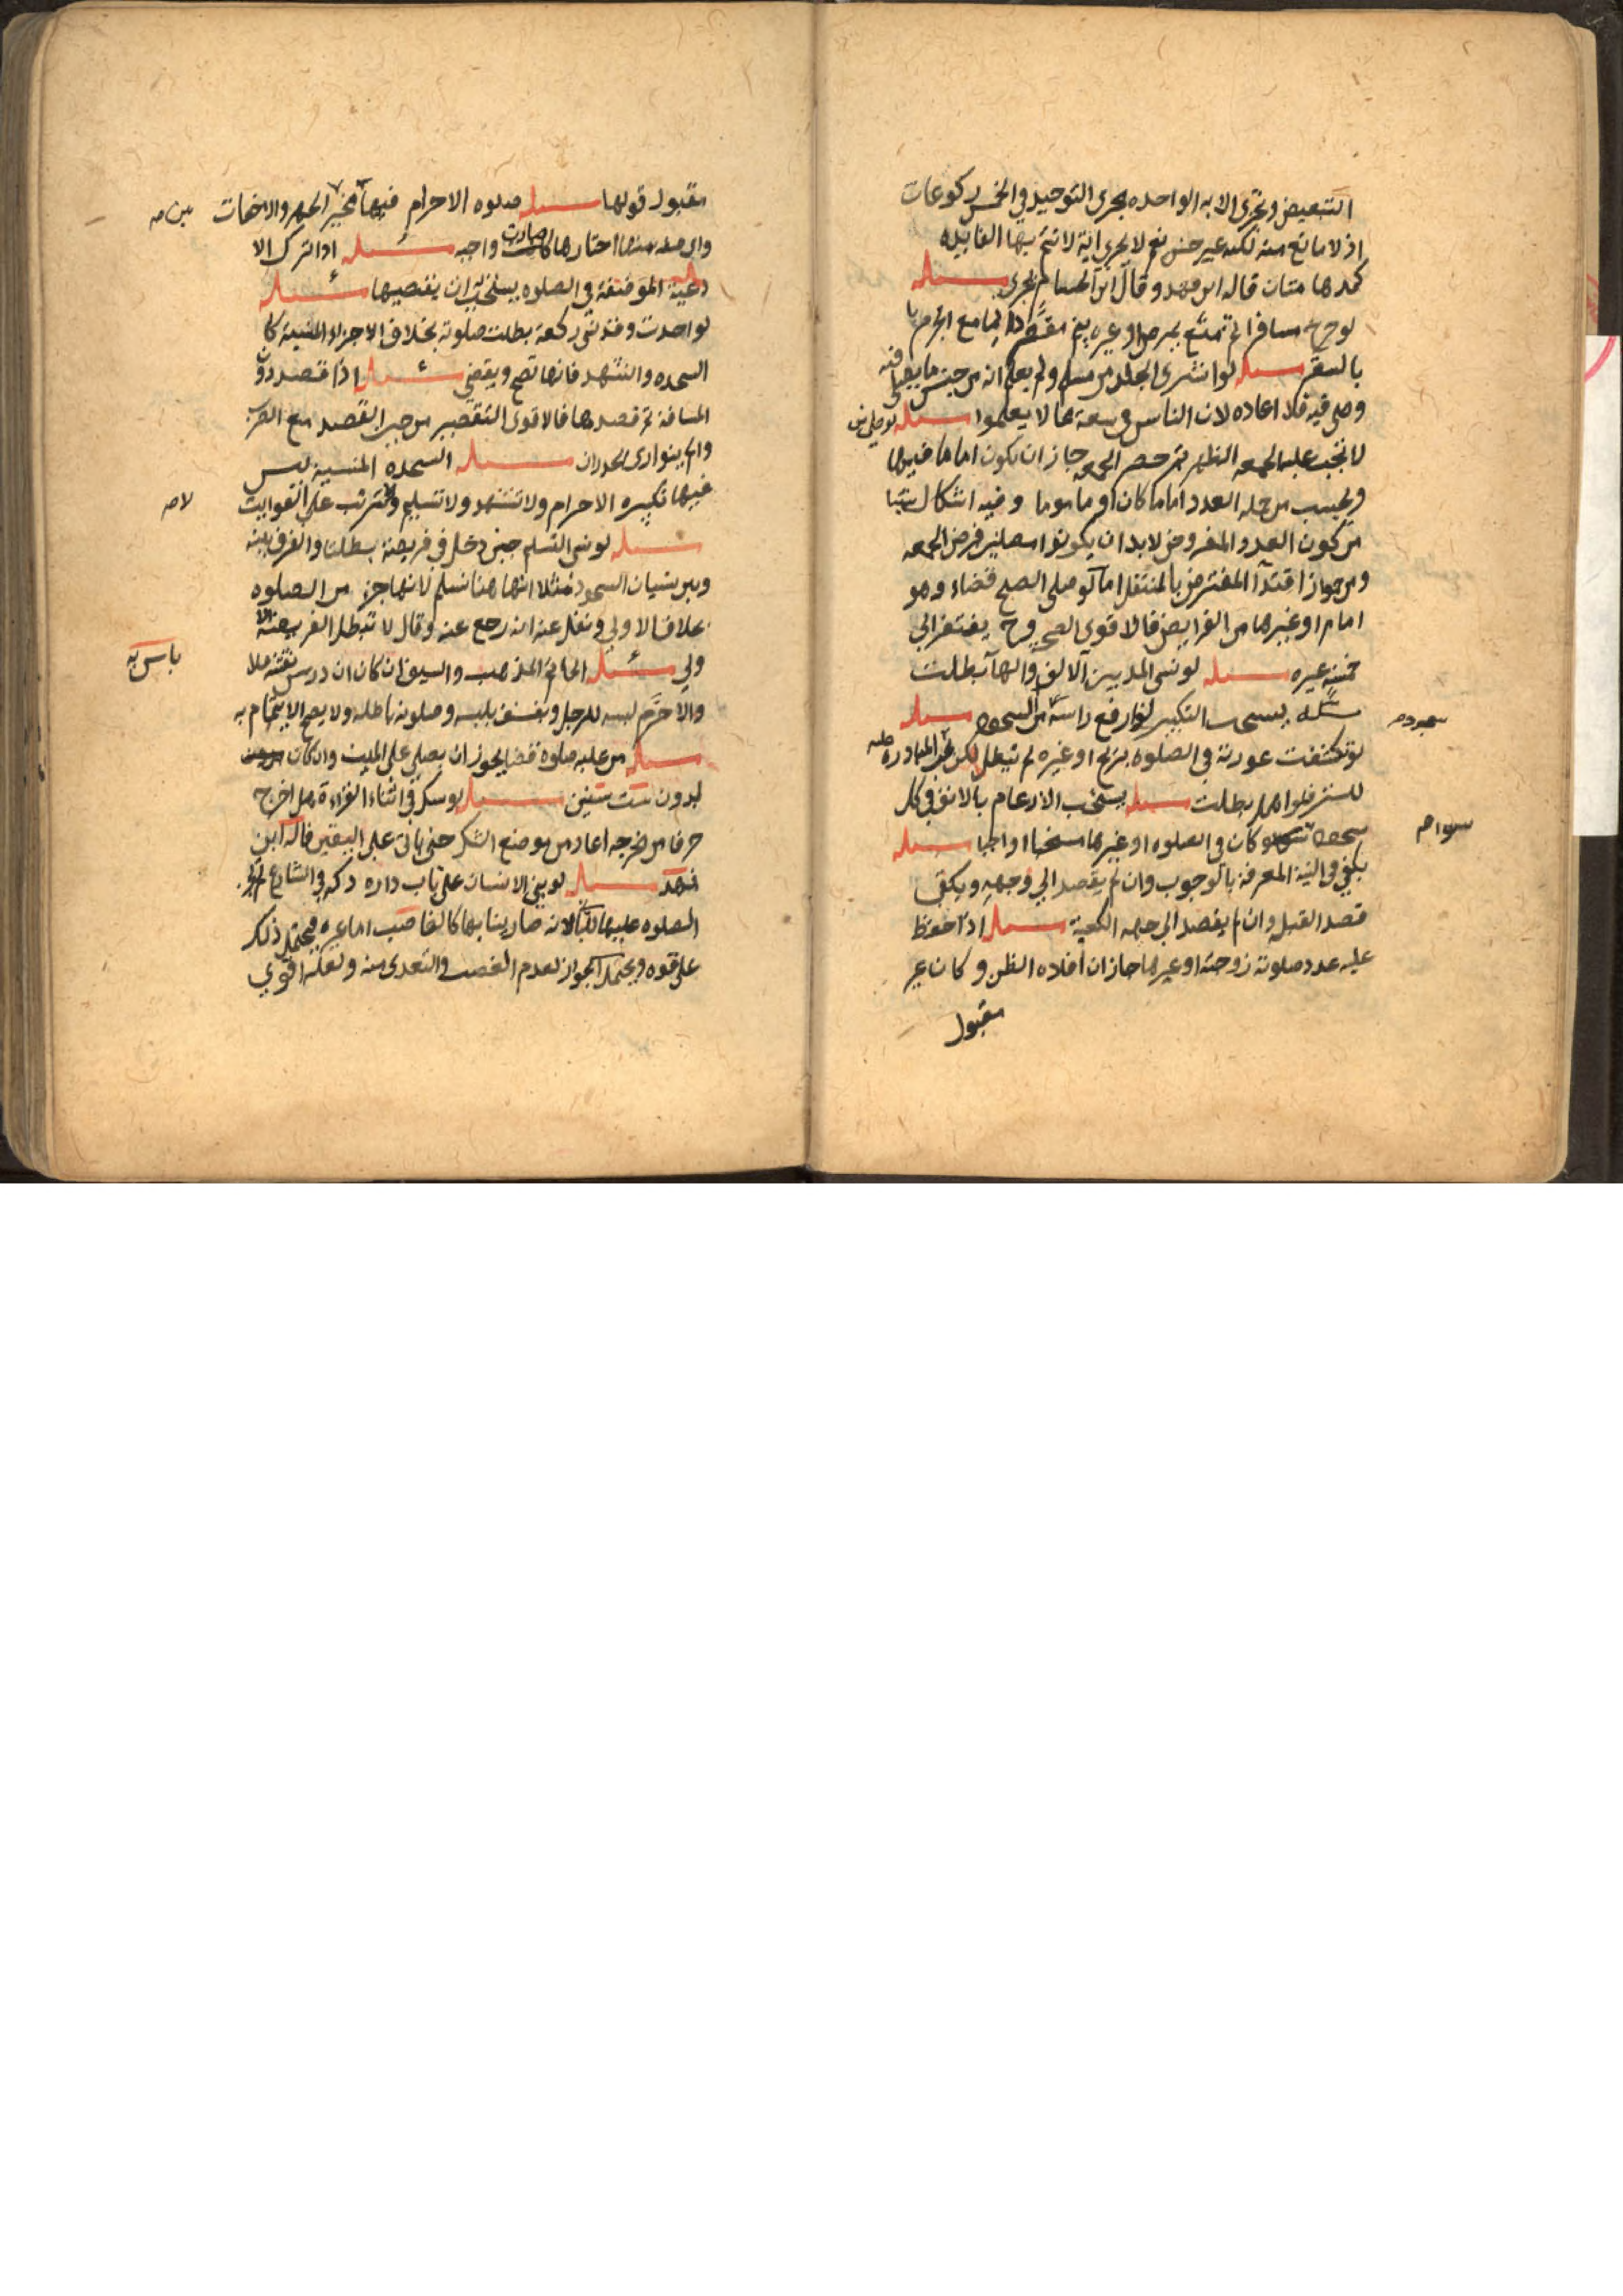 التبعيض وتجزى الايه الواحده مجرى التوحيد في الخمس ركوعات
اذ لا مانع منه لكنه غير حسن نعم لا يجزى اية لا تتم بها الفايده
كمدهامتان قاله ابن فهد وقال ابن الحسام يجزى مسله
لو خرج مسافرا ثم تمنع بمرض او غيره بقى مقصرا دايما مع الجزم
بالسفر مسله لو اشترى الجلد من مسلم ولم يعلم انه من جنس ما يصلى فيه
وصلى فيه فلا اعاده لان الناس في سعة مما لا يعلموا مسله لو صلى من
لا تجب عليه الجمعه الظهر ثم حضر الجمعه جاز ان يكون اماما فيها
ويحسب من جمله العدد اماما كان او ماموما وفيه اشكال ينشا
من كون العدد المفروض لابد ان يكونوا مصلين فرض الجمعه
ومن جواز اقتدآ المفترض بالمنتفل اما لو صلى الصبح قضاء وهو
امام او غيرها من الفرايض فالاقوى الصحه وح يفتقر الى
خمسة غيره مسله لو نسى المد بين الالف والهآ بطلت
مسئله يستحب التكبير لو رفع راسه من السجود مسله
لو تكشفت عورته في الصلوه بريح او غيره لم تبطل لكن تجب المبادره عليه
للستر فلو اهمل بطلت مسله يستحب الارغام بالانف في كل
سجود كان في الصلوه او غيرها مستحبا او واجبا مسله
يكفي في النية المعرفة بالوجوب وان لم يقصد الى وجهه ويكفى
قصد القبله وان لم يقصد الى جهه الكعبة مسله اذا حفظ
عليه عدد صلوته زوجته او غيرها جاز ان افاده الظن وكان غير
مقبول
سجوده
سوا
مقبول قولها مسله صلوه الاحرام فيها مخير الجهر والاخفات
واى صله منها اختارها صارت واجبه مسئله اذا ترك الا
دعية الموضفة في الصلوه يستحب له ان يقضيها مسئله
لو احدث وقد نسى ركعة بطلت صلوته بخلاف الاجزاء المنسية كا
السجده والتشهد فانها تصح ويقضي مسئله اذا قصد دون
المسافة ثم قصدها فالاقوى التقصير من حين القصد مع الضرب
وان لم يتوارى الجدران مسله السجده المنسية ليس
فيها تكبيره الاحرام ولا تشهد ولا تسليم وتترتب على الفوايت
مسله لو نسى التسليم حين دخل في فريضة بطلتا والفرق بينه
وبين نسيان السجود مثلا انها هنا تسلم لانها جزء من الصلوه
بخلاف الاولى ونقل عنه انه رجع عنه وقال لا تبطل الفريضة الا
ولى مسئله الخاتم المذهب والسيف ان كان ان درس نقشه فلا
والا حرم لبسه للرجل ويفسق بلبسه وصلوته باطله ولا يصح الايتمام به
مسله من عليه صلوة قضا يجوز ان يصلي على الميت وان كان
لدون ست سنين مسله لو شك في اثناء القراءة هل اخرج
حرفا من مخرجه اعاد من موضع الشك حتى ياتى على اليقين قاله ابن
فهد مسله لو بنى الانسان على باب داره دكه في الشارع لم تجز
الصلوه عليها للباني لانه صار بنا بها كالغاصب اما غيره فيحتمل ذلك
على قوه ويحتمل الجواز لعدم الغصب والتعدى منه ولعله اقوى
بين
لا
باس به